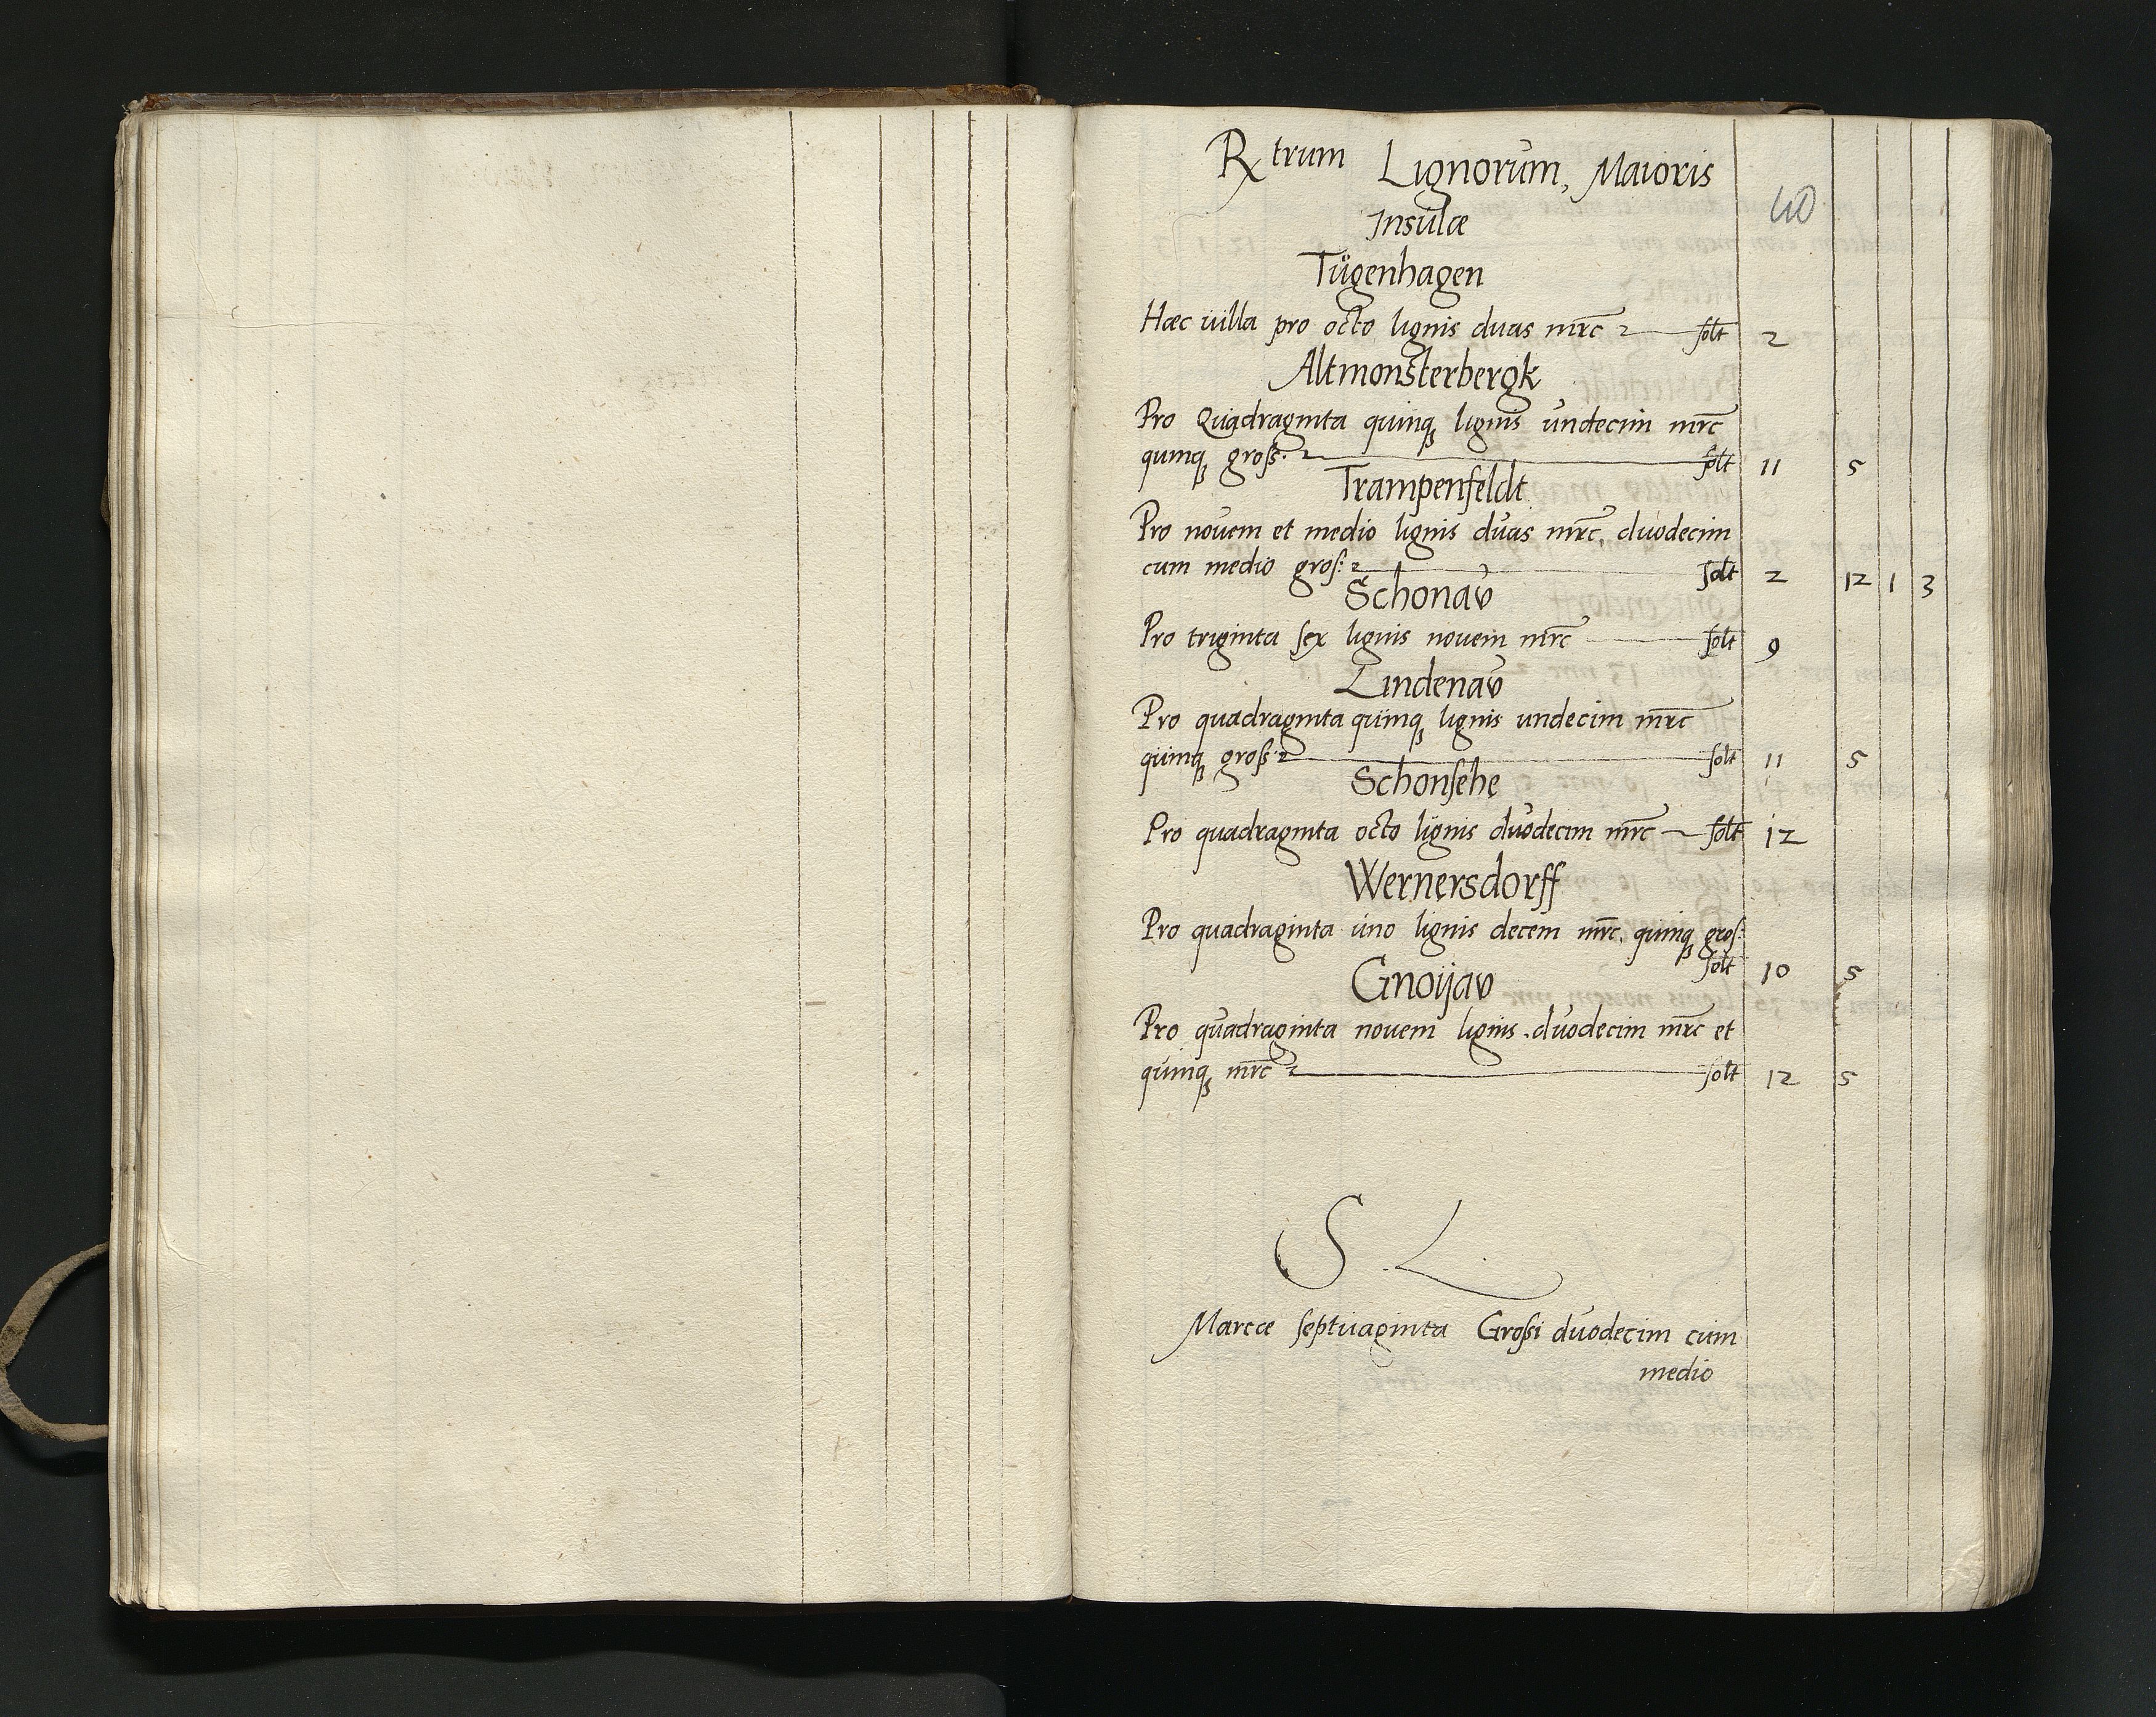 Rx trum Lignorum, Maioris
40
Insulæ
Tügenhagen
Hæc uilla pro octo lignis duas mrc solt 2
Altmonsterbergk
Pro Quadraginta quinq lignis undecim mrc
quinq gross. solt 11 5
Trampenfeldt
Pro nouem et medio lignis duas mrc, duodecim
cum medio gros: solt 2 12 1 3
Schonau
Pro triginta sex lignis nouem mrc solt 9
Lindenau
Pro quadraginta quinq lignis undecim mrc
quinq gross: solt 11 5
Schonsehe
Pro quadraginta octo lignis duodecim mrc solt 12
Wernersdorff
Pro quadraginta uno lignis decem mrc, quinq gros:
solt 10 5
Gnoijau
Pro quadraginta nouem lignis duodecim mrc et
quinq mrc solt 12 5
S L
Marcæ septuaginta Grossi duodecim cum
medio